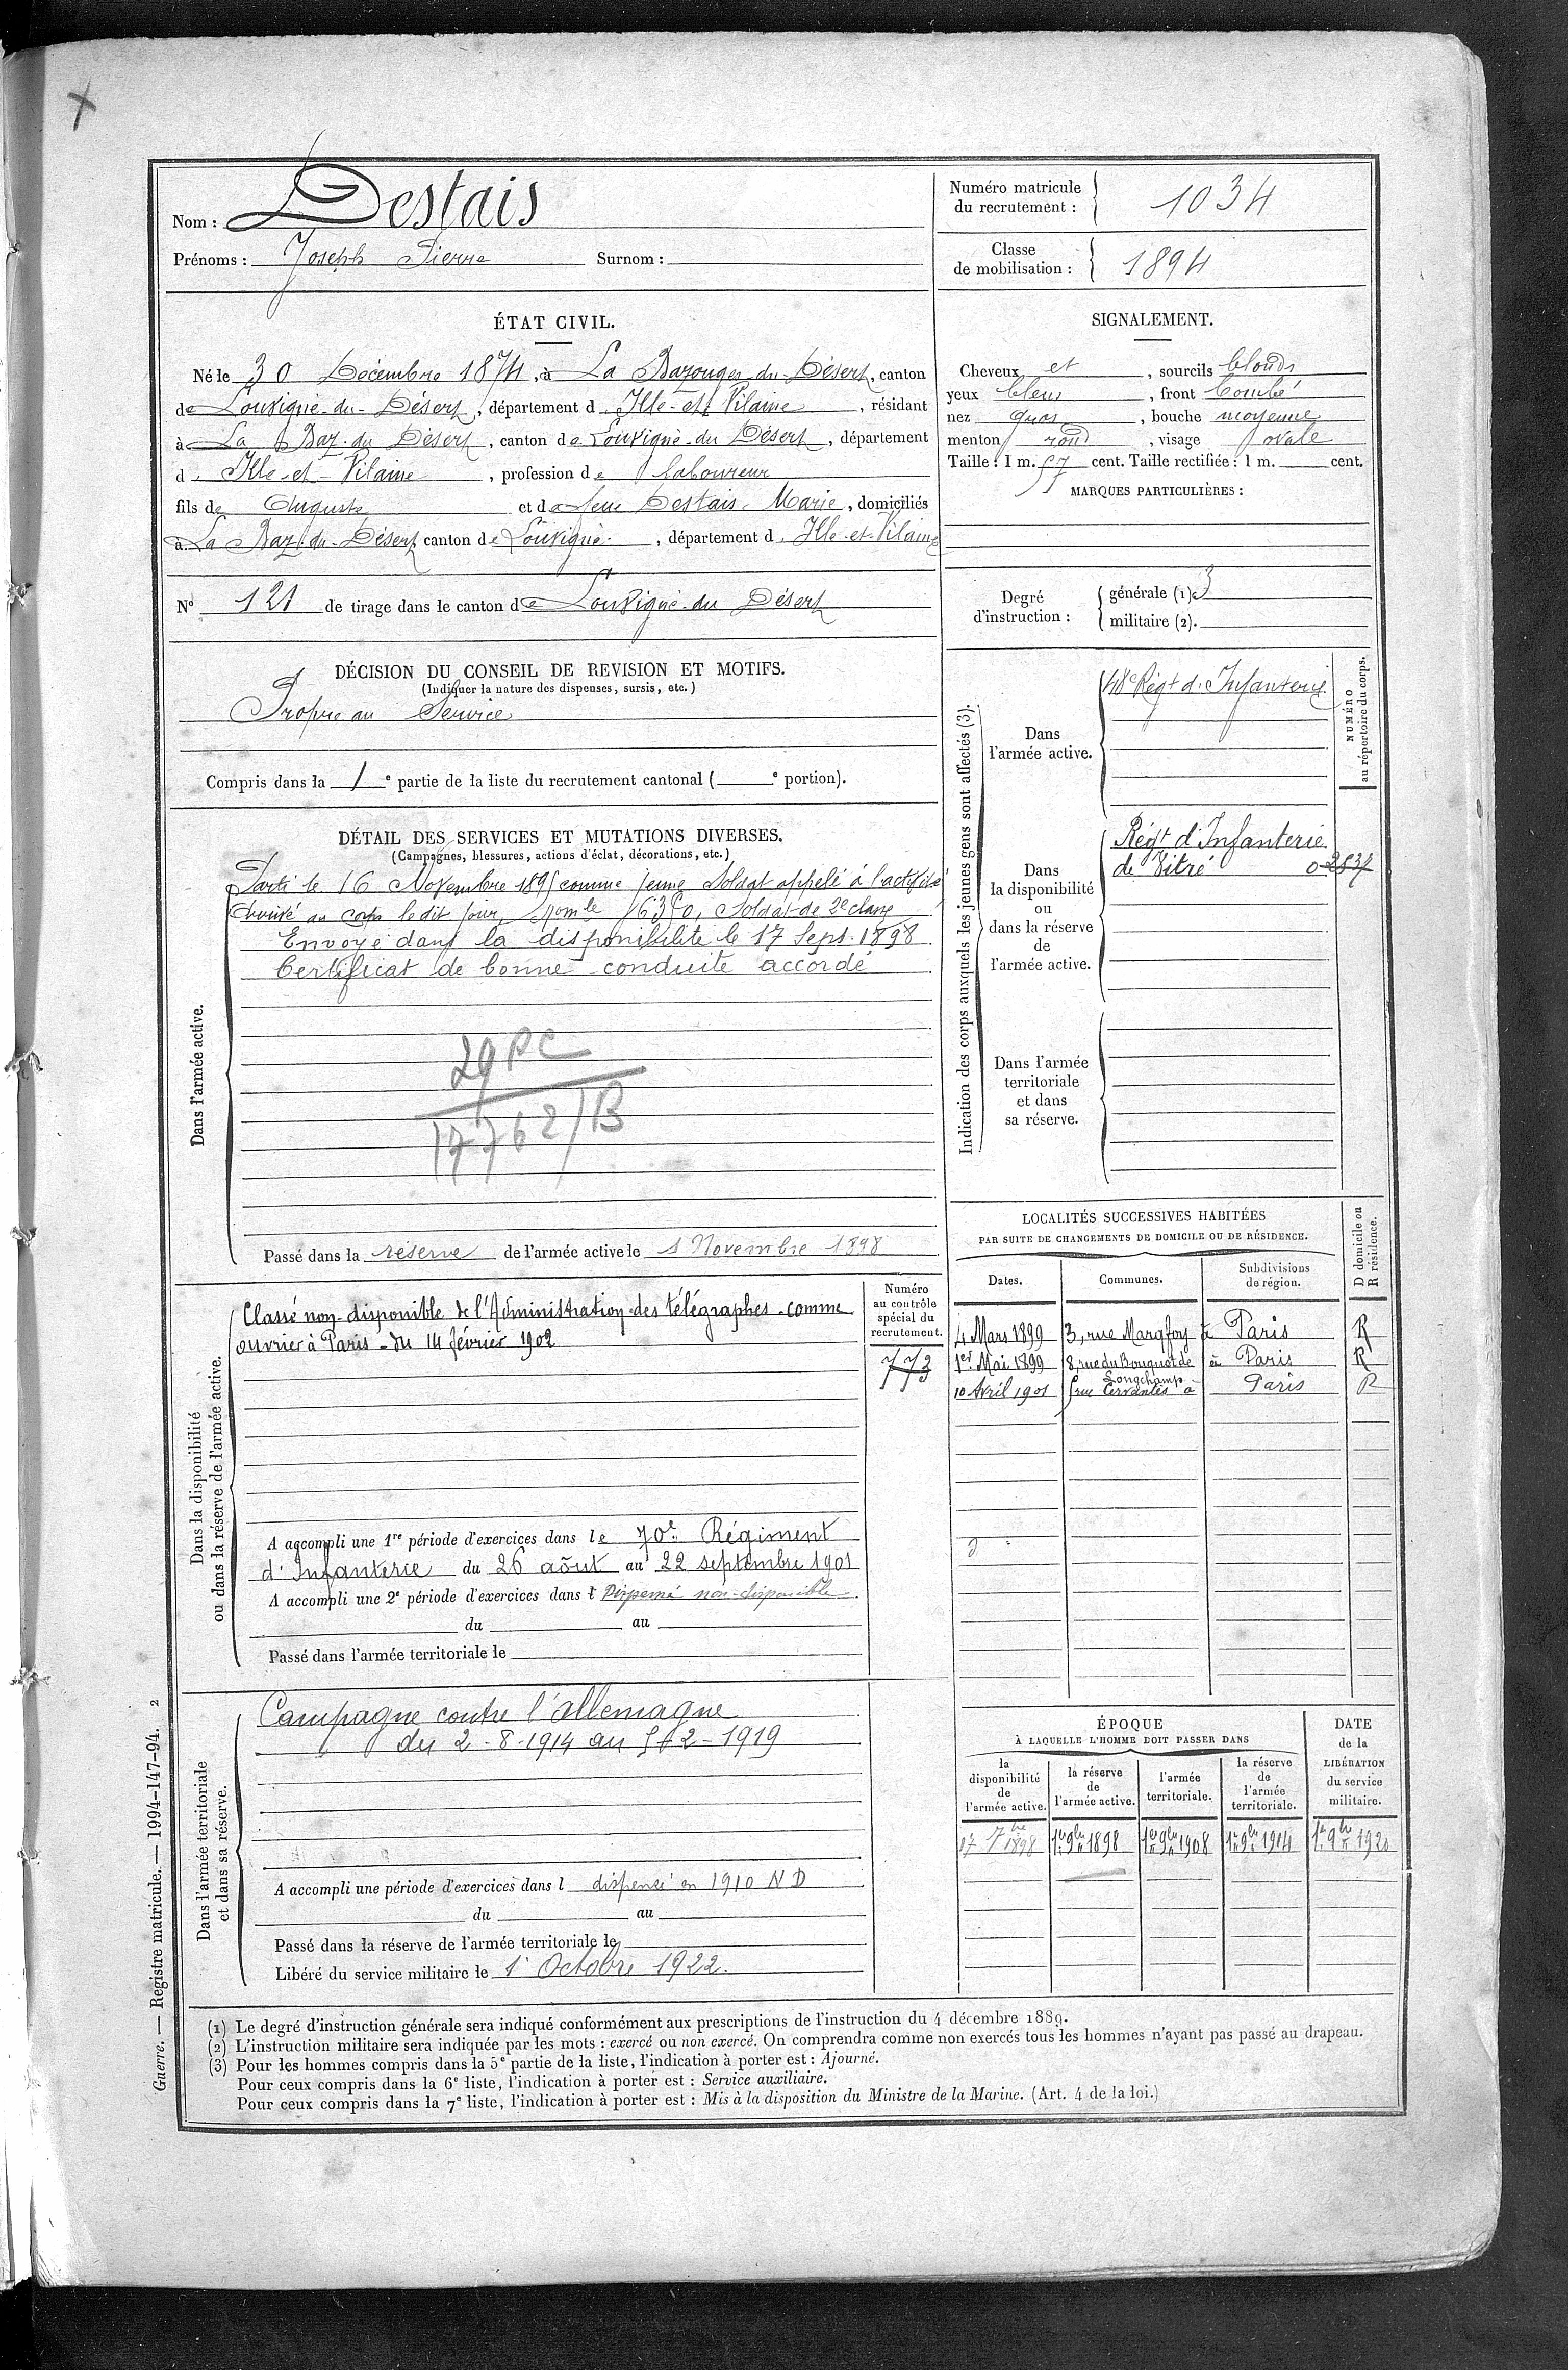 Nom : Destais
Prénoms : Joseph Pierre Surnom :
Numéro matricule du recrutement : 1034
Classe de mobilisation : 1894
ÉTAT CIVIL.
Né le 30 Décembre 1874, à La Bazouges-du-Désert, canton
de Louvigné-du-Désert, département d'Ille-et-Vilaine, résidant
à La Baz. du Désert, canton de Louvigné-du Désert, département
d'Ille-et-Vilaine, profession de laboureur
fils de Auguste et de feue Destais Marie, domiciliés
à La Baz. du-Désert, canton de Louvigné, département d'Ille-et-Vilaine
N° 121 de tirage dans le canton de Louvigné-du Désert
SIGNALEMENT.
Cheveux et , sourcils blonds
yeux bleus , front bombé
nez gros , bouche moyenne
menton rond , visage ovale
Taille : 1 m. 57 cent. Taille rectifiée : 1 m. cent.
MARQUES PARTICULIÈRES :
Degré d'instruction :
générale (1). 3
militaire (2).
DÉCISION DU CONSEIL DE REVISION ET MOTIFS.
(Indiquer la nature des dispenses, sursis, etc.)
Propre au Service
Compris dans la 1e partie de la liste du recrutement cantonal ( e portion).
DÉTAIL DES SERVICES ET MUTATIONS DIVERSES.
(Campagnes, blessures, actions d'éclat, décorations, etc.)
Dans l'armée active.
Parti le 16 Novembre 1895 comme jeune Soldat appelé à l'activité
Arrivé au corps le dit jour, Soldat de 2e classe
Envoyé dans la disponibilité le 17 Sept. 1898
Certificat de bonne conduite accordé
29 PC
17762/B
Passé dans la réserve de l'armée active le 1 Novembre 1898
Indication des corps auxquels les jeunes gens sont affectés (3).
NUMÉRO
au répertoire du corps.
Dans
l'armée active.
48e Régt d'Infanterie
Dans
la disponibilité
ou
dans la réserve
de
l'armée active.
Régt d'Infanterie
de Vitré
Dans l'armée
territoriale
et dans
sa réserve.
LOCALITÉS SUCCESSIVES HABITÉES
PAR SUITE DE CHANGEMENTS DE DOMICILE OU DE RÉSIDENCE.
Dates. Communes. Subdivisions de région. D domicile ou R résidence.
4 Mars 1899 3, rue Margfoy à Paris R
1er Mai 1899 8, rue du Bouquet de Longchamp à Paris R
10 Avril 1901 5 rue Cervantès à Paris R
Dans la disponibilité
ou dans la réserve de l'armée active.
Numéro
au contrôle
spécial du
recrutement.
773
Classé non-disponible de l'Administration des télégraphes comme
ouvrier à Paris - du 14 février 1902
A accompli une 1re période d'exercices dans le 70e Régiment
d'Infanterie du 26 août au 22 septembre 1901
A accompli une 2e période d'exercices dans l Dispensé non-disponible
du au
Passé dans l'armée territoriale le
Dans l'armée territoriale
et dans sa réserve.
Campagne contre l'allemagne
du 2-8-1914 au 5-2-1919
A accompli une période d'exercices dans l dispensé en 1910 ND
du au
Passé dans la réserve de l'armée territoriale le
Libéré du service militaire le 1' Octobre 1922.
ÉPOQUE
À LAQUELLE L'HOMME DOIT PASSER DANS
la
disponibilité
de
l'armée active.
la réserve
de
l'armée active.
l'armée
territoriale.
la réserve
de
l'armée
territoriale.
DATE
de la
LIBÉRATION
du service
militaire.
17 7bre 1898 1er 9bre 1898 1er 9bre 1908 1er 9bre 1914 1er 9bre 1920
Guerre. — Registre matricule. — 1994-147-94. 2
(1) Le degré d'instruction générale sera indiqué conformément aux prescriptions de l'instruction du 4 décembre 1889.
(2) L'instruction militaire sera indiquée par les mots : exercé ou non exercé. On comprendra comme non exercés tous les hommes n'ayant pas passé au drapeau.
(3) Pour les hommes compris dans la 5e partie de la liste, l'indication à porter est : Ajourné.
Pour ceux compris dans la 6e liste, l'indication à porter est : Service auxiliaire.
Pour ceux compris dans la 7e liste, l'indication à porter est : Mis à la disposition du Ministre de la Marine. (Art. 4 de la loi.)